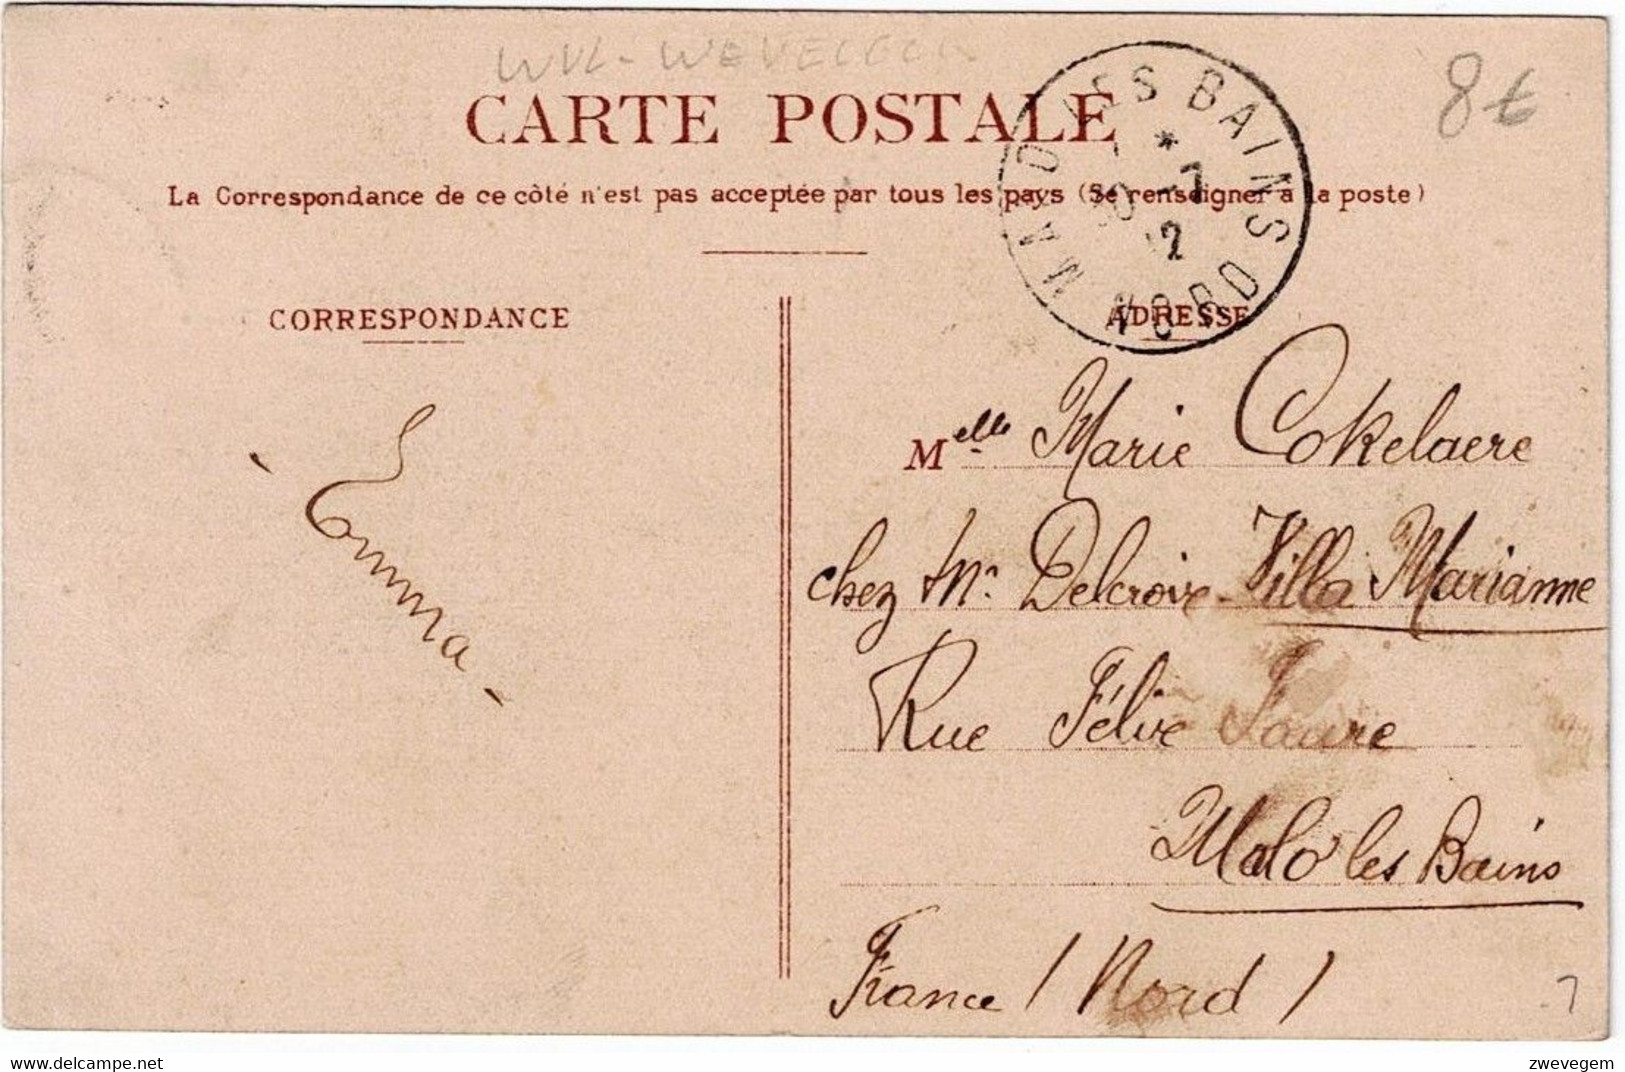 8€
CARTE POSTALE
La Correspondance de ce côté n'est pas acceptée par tous les pays (Se renseigner à la poste)
LES BAINS
* 
-7
12
NORD
CORRESPONDANCE
ADRESSE
- Emma -
Melle Marie Cokelaere
chez Mr Delcroix - Villa Marianne
Rue Félix Faure
Malo les Bains
France / Nord /
www.delcampe.net
zwevegem